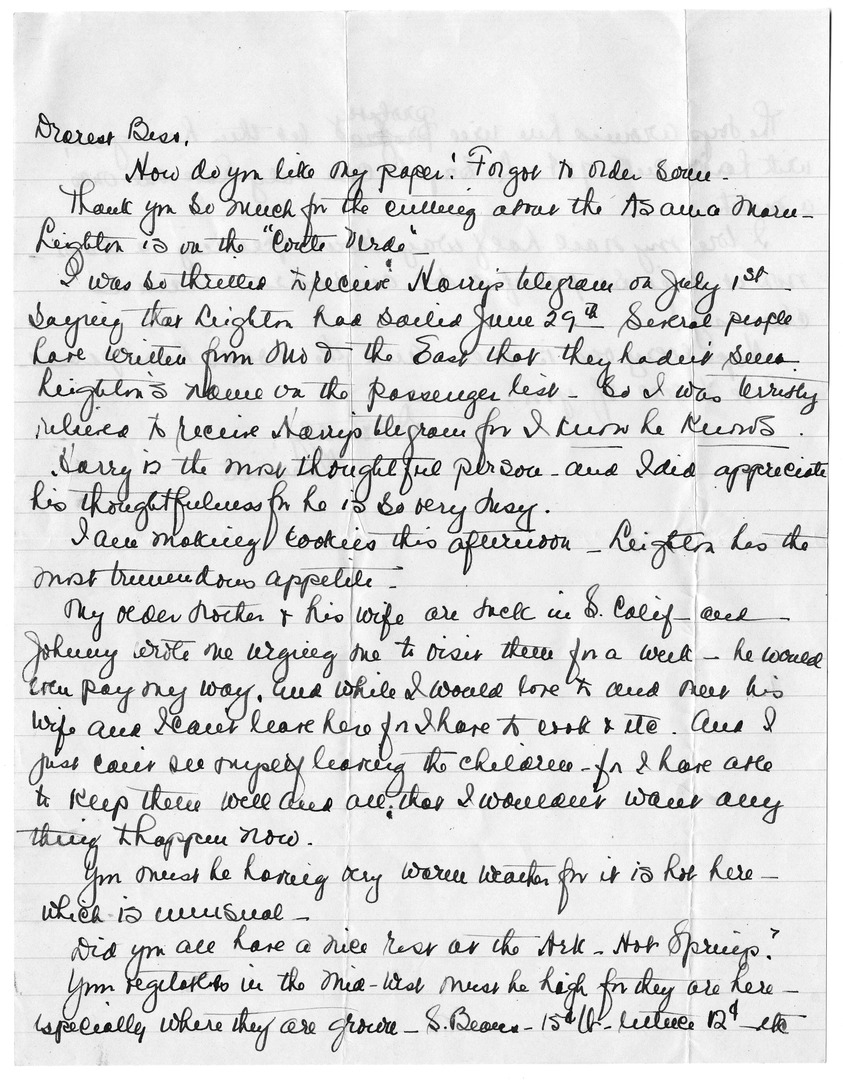 Dearest Bess,
How do you like my paper! Forgot to order some -
Thank you so much for the cutting about the Asama Maru -
Leighton is on the "Conte Verde" -
I was so thrilled to receive Harry's telegram on July 1st
saying that Leighton had sailed June 29th Several people
have written from Mo & the East that they hadn't seen
Leighton's name on the passenger list - So I was terribly
relieved to receive Harry's telegram for I know he knows.
Harry is the most thoughtful person - and I did appreciate
his thoughtfulness for he is so very busy.
I am making cookies this afternoon - Leighton has the
most tremendous appetite -
My older brother & his wife are back in S. Calif - and -
Johnny wrote me urging me to visit them for a week - he would
even pay my way. and while I would love to and meet his
wife and I can't leave here for I have to cook & etc. And I
just can't see myself leaving the children - for I have
to keep them well and all, that I wouldn't want any
thing to happen now.
You must be having very warm weather for it is hot here -
which is unusual -
Did you all have a nice rest at the Ark - Hot Springs?
Your vegetables in the Mid-West must be high for they are here -
especially where they are grown - S. Beans - 15¢ lb - lettuce 12¢ - etc